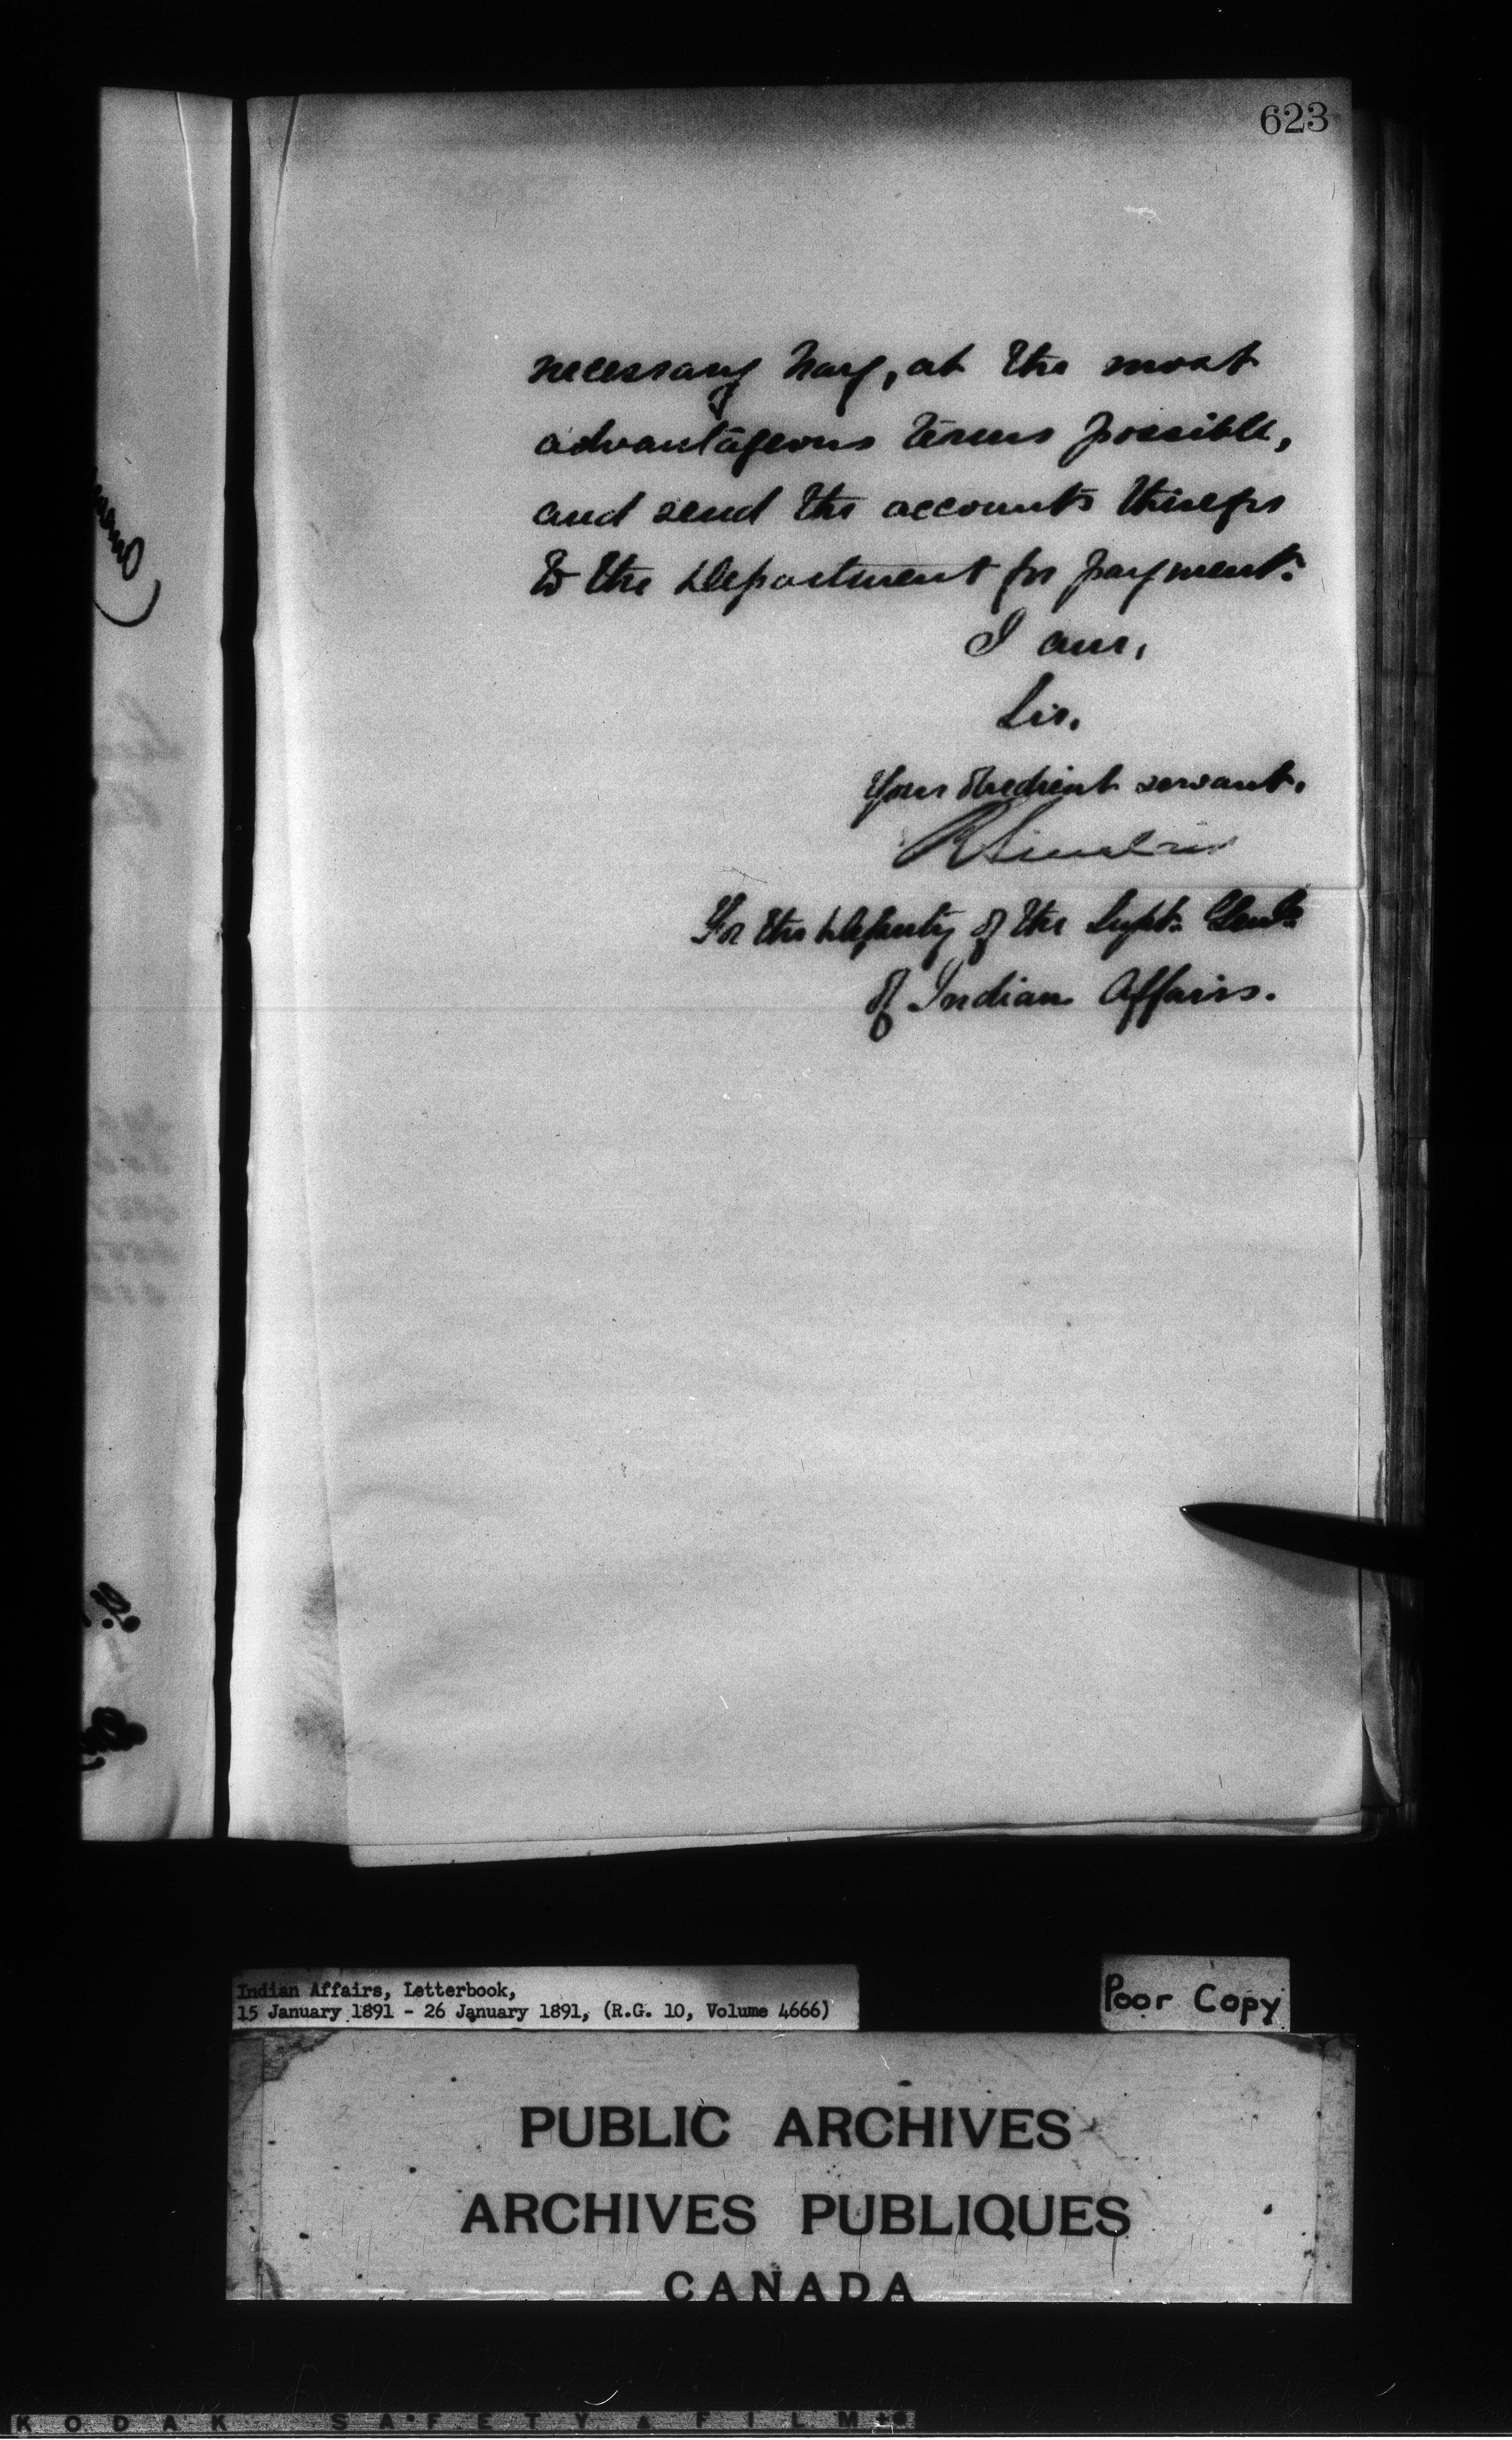 623
necessary hay, at the most
advantageous terms possible,
and send the accounts therefor
to the Department for payment.
I am,
Sir,
Your obedient servant,
R Sinclair
For the Deputy of the Supt. Genl.
of Indian Affairs.
Indian Affairs, Letterbook,
15 January 1891 - 26 January 1891, (R.G. 10, Volume 4666)
Poor Copy
PUBLIC ARCHIVES
ARCHIVES PUBLIQUES
CANADA
KODAK SAFETY FILM